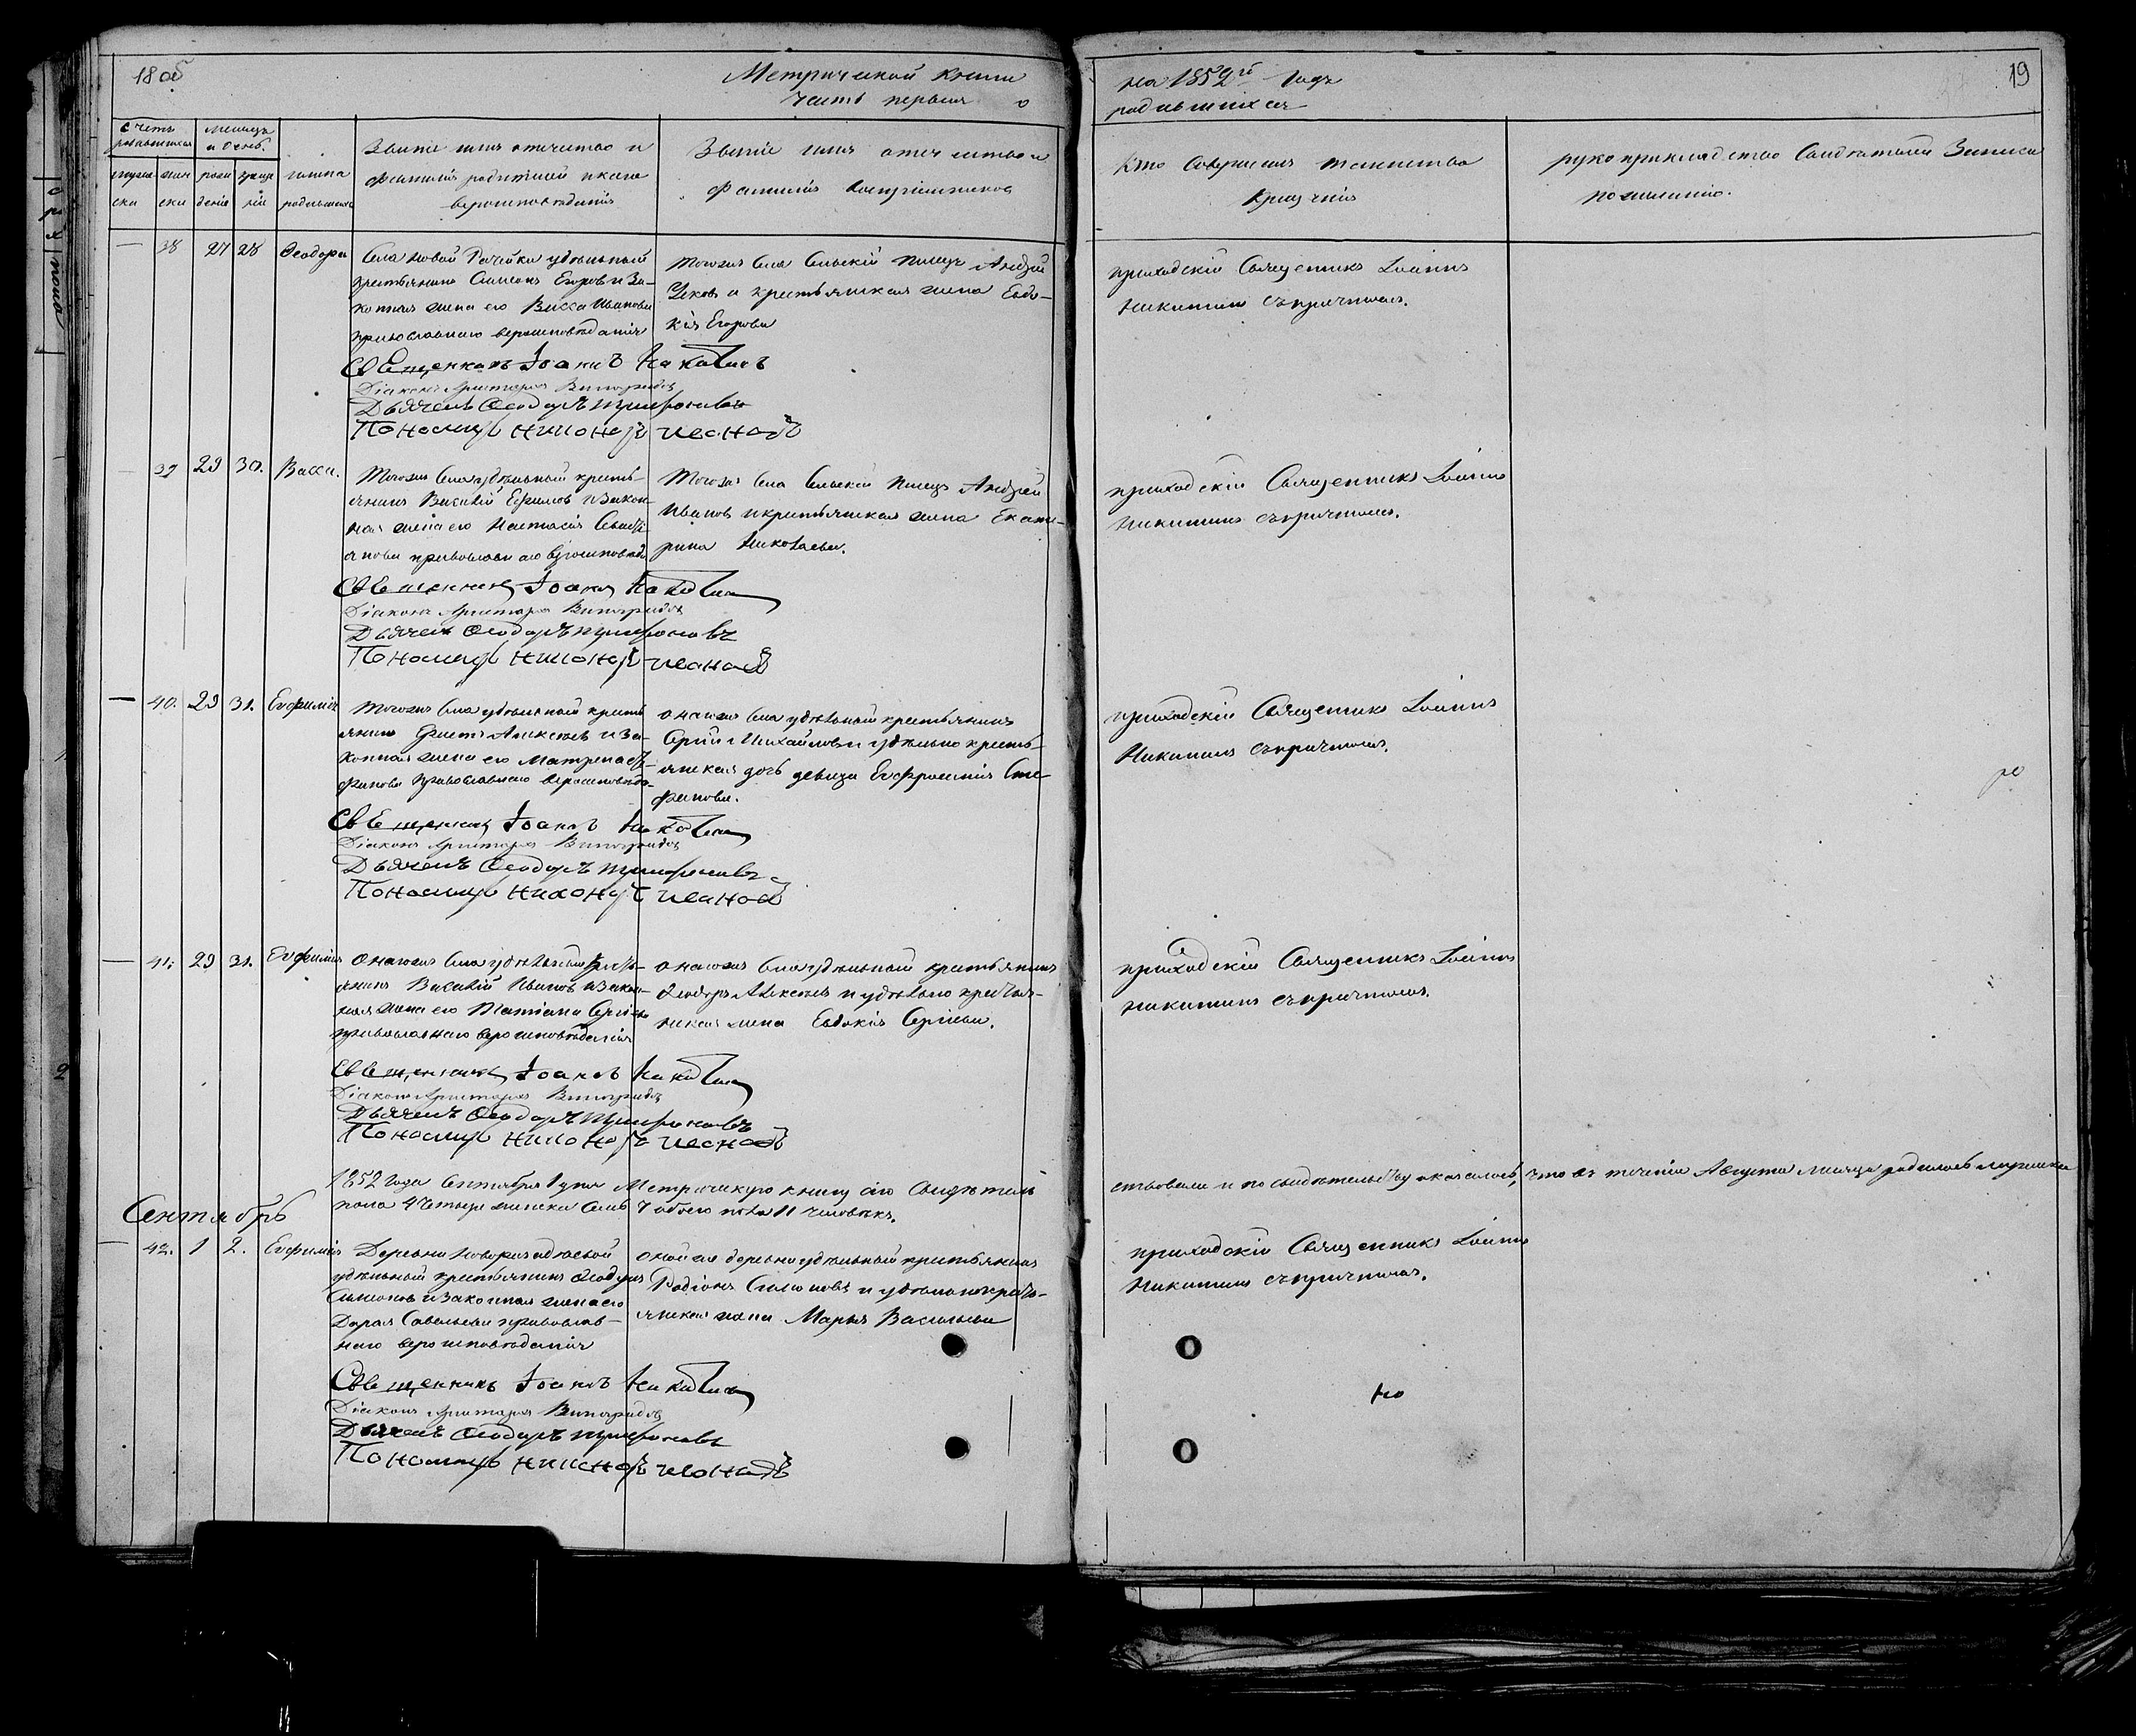 Метрической книги
часть первая
на 1852й Годъ
родившихся
19
Счетъ родившихся
месяцъ и день.
мужески
женски
рождения
крещения
имена родившихся
Звание имя отчество и
фамилия родителей и какого
вероисповѣдания
Звание имя отчество и
фамилия восприемниковъ
Кто совершалъ таинство
крещения
рукоприкладство свидѣтелей записи
по желанию.
— 38 27 28 Ѳеодора
Села Новой Рачейки удѣльный
крестьянинъ Симеонъ Егоровъ и за-
конная жена его Васса Иванова
православнаго вероисповѣдания
тогожъ села сельский писецъ Андрей
и крестьянская жена Евдо-
кия Егорова
приходский Священникъ Iоаннъ
Никитинъ съ причтомъ.
Свещенникъ Iоаннъ Никитинъ
Дiаконъ Аристархъ Виноградовъ
Дьячекъ Ѳеодоръ Трифоновъ
Пономарь Никоноръ Ивановъ
— 39 29 30. Васса.
Тогожъ села удѣльный кресть-
янинъ Василий Ефимовъ и закон-
ная жена его Настасия Севасть-
янова православнаго вероисповѣд
Тогожъ села сельский писецъ Андрей
Ивановъ и крестьянская жена Екате-
рина Николаева.
приходский Священникъ Iоаннъ
Никитинъ съ причтомъ.
Свещенникъ Iоаннъ Никитинъ
Дiаконъ Аристархъ Виноградовъ
Дьячекъ Ѳеодоръ Трифоновъ
Пономарь Никоноръ Ивановъ
— 40. 29 31. Евфимия
Тогожъ села удѣльный кресть-
янинъ Алексѣевъ и за-
конная жена его Матрена
православнаго вероисповѣд-
онагожъ села удѣльный крестьянинъ
Сергий Михайловъ и удѣльно кресть-
янская дочь девица Евфросиния Сте-
фанова.
приходский Священникъ Iоаннъ
Никитинъ съ причтомъ.
Свещенникъ Iоаннъ Никитинъ
Дiаконъ Аристархъ Виноградовъ
Дьячекъ Ѳеодоръ Трифоновъ
Пономарь Никоноръ Ивановъ
— 41. 29 31. Евфимия
Онагожъ села удѣльный кресть-
янинъ Василий Ивановъ и закон-
ная жена его Татiана Сергиева
православнаго вероисповѣдания
онагожъ села удѣльный крестьянинъ
Ѳеодоръ Алексѣевъ и удѣльно кресть-
янская жена Евдокия Сергиева.
приходский Священникъ Iоаннъ
Никитинъ съ причтомъ.
Свещенникъ Iоаннъ Никитинъ
Дiаконъ Аристархъ Виноградовъ
Дьячекъ Ѳеодоръ Трифоновъ
Пономарь Никоноръ Ивановъ
1852 года Сентября 1 дня Метрическую книгу сию свидѣтель
ствовали и по свидѣтельству оказалось, что въ течении Августа месяца родилось мужеска
пола 4 четыре женска семь 7 обоего пола 11 человѣкъ.
Сентябрь
— 42. 1 2. Евфимия
Деревни
удѣльный крестьянинъ Ѳеодоръ
Симеоновъ и законная жена его
Дарья Савельева православ-
наго вероисповѣдания
оной же деревни удѣльный крестьянинъ
Родионъ Симеоновъ и удѣльно кресть-
янская жена Марья Васильева
приходский Священникъ Iоаннъ
Никитинъ съ причтомъ.
Свещенникъ Iоаннъ Никитинъ
Дiаконъ Аристархъ Виноградовъ
Дьячекъ Ѳеодоръ Трифоновъ
Пономарь Никоноръ Ивановъ
по